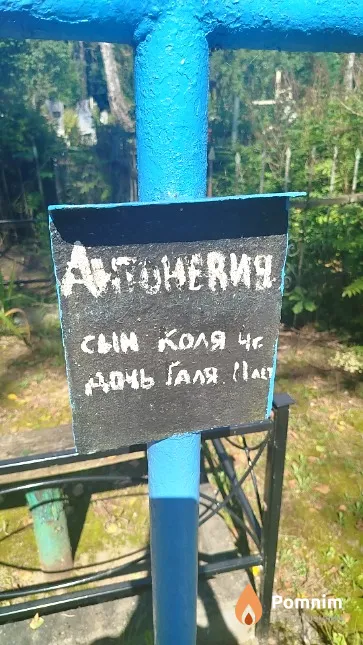 Антоневич
сын Коля 4г.
дочь Галя 11лет
Pomnim